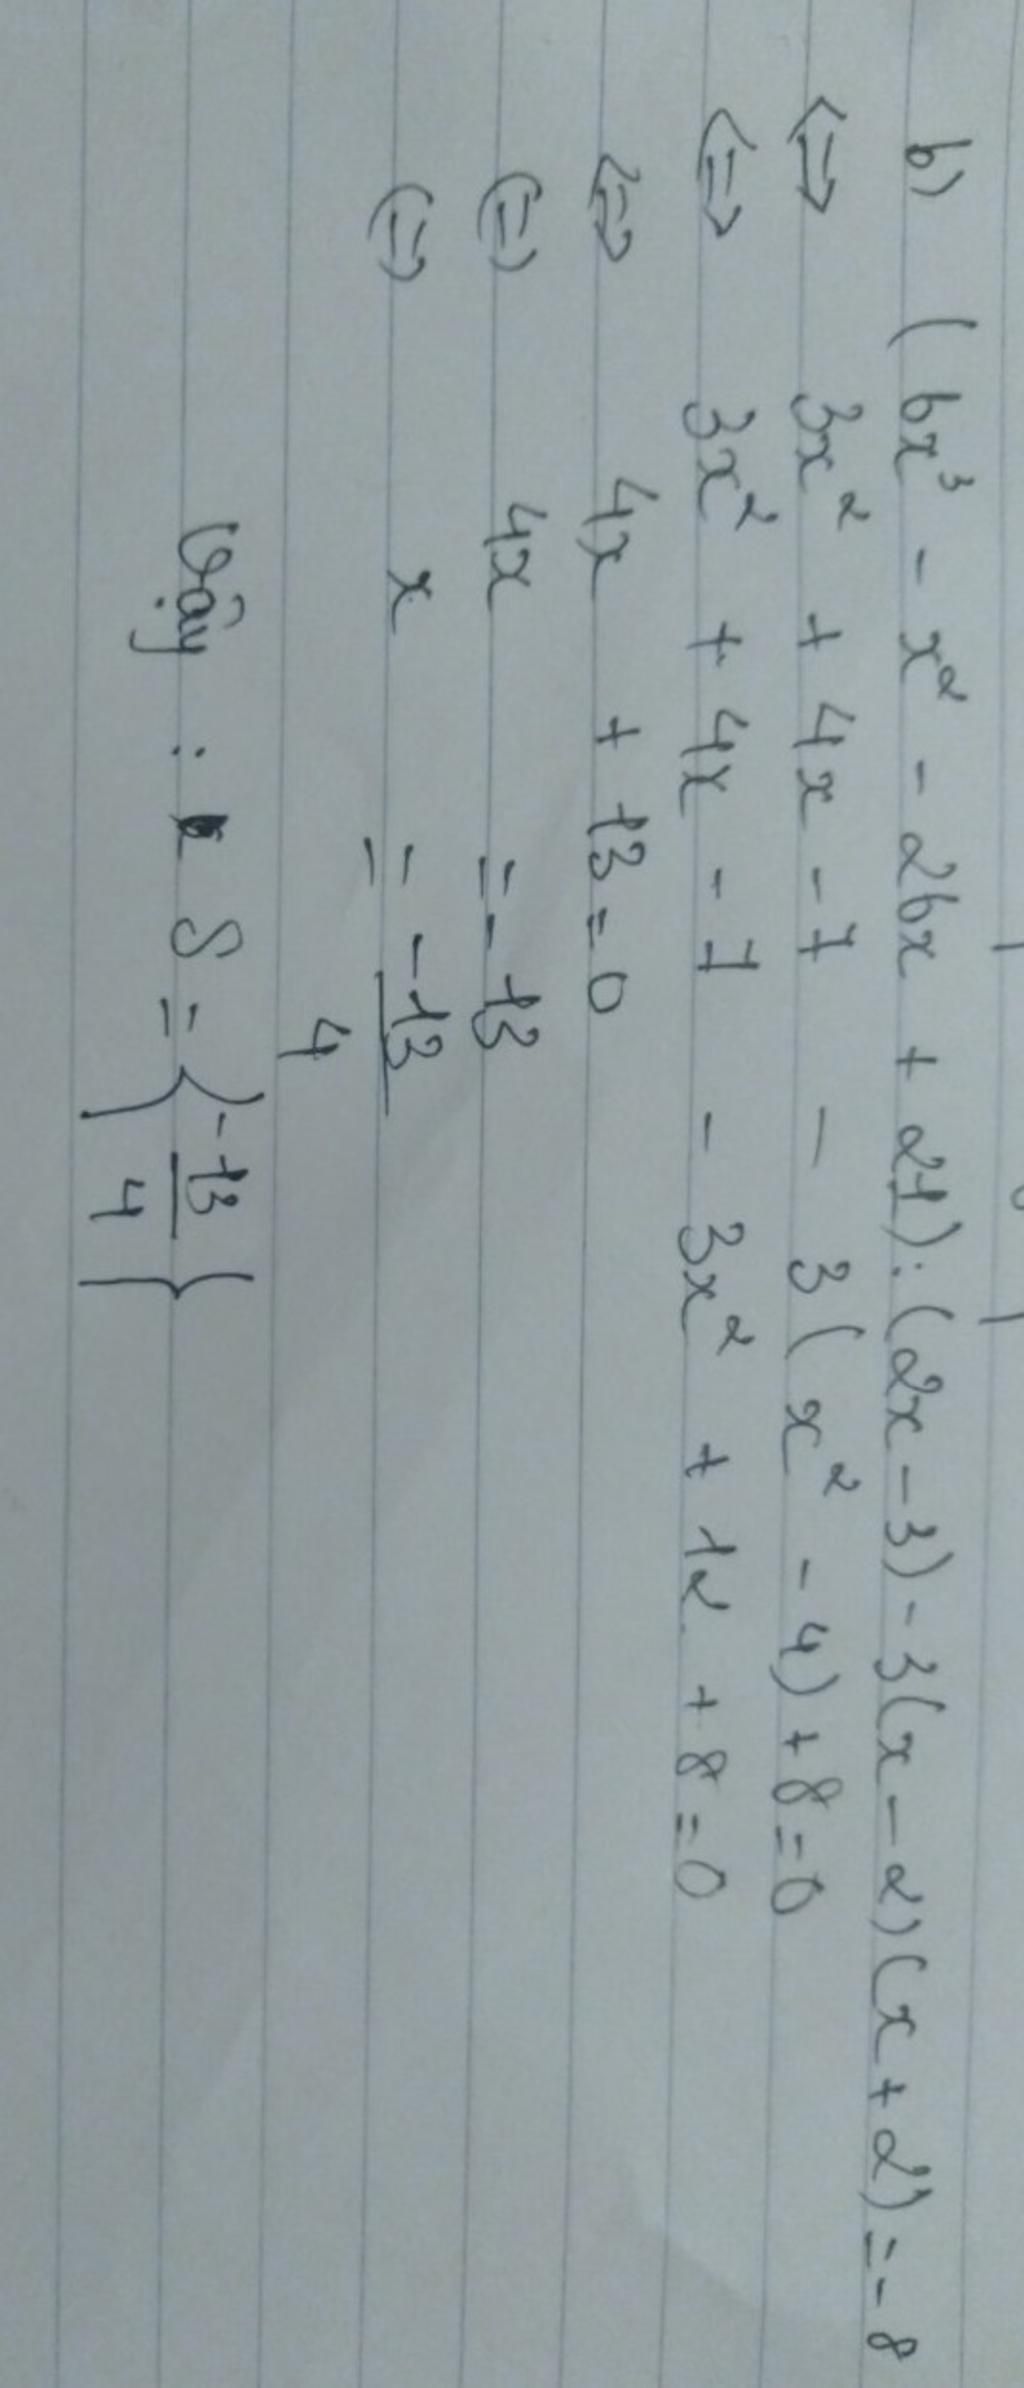 b) (6x³ - x² - 26x + 21) : (2x - 3) - 3(x - 2)(x + 2) = -8
⇔ 3x² + 4x - 7 - 3(x² - 4) + 8 = 0
⇔ 3x² + 4x - 7 - 3x² + 12 + 8 = 0
⇔ 4x + 13 = 0
⇔ 4x = -13
⇔ x = -13/4
Vậy : S = {-13/4}